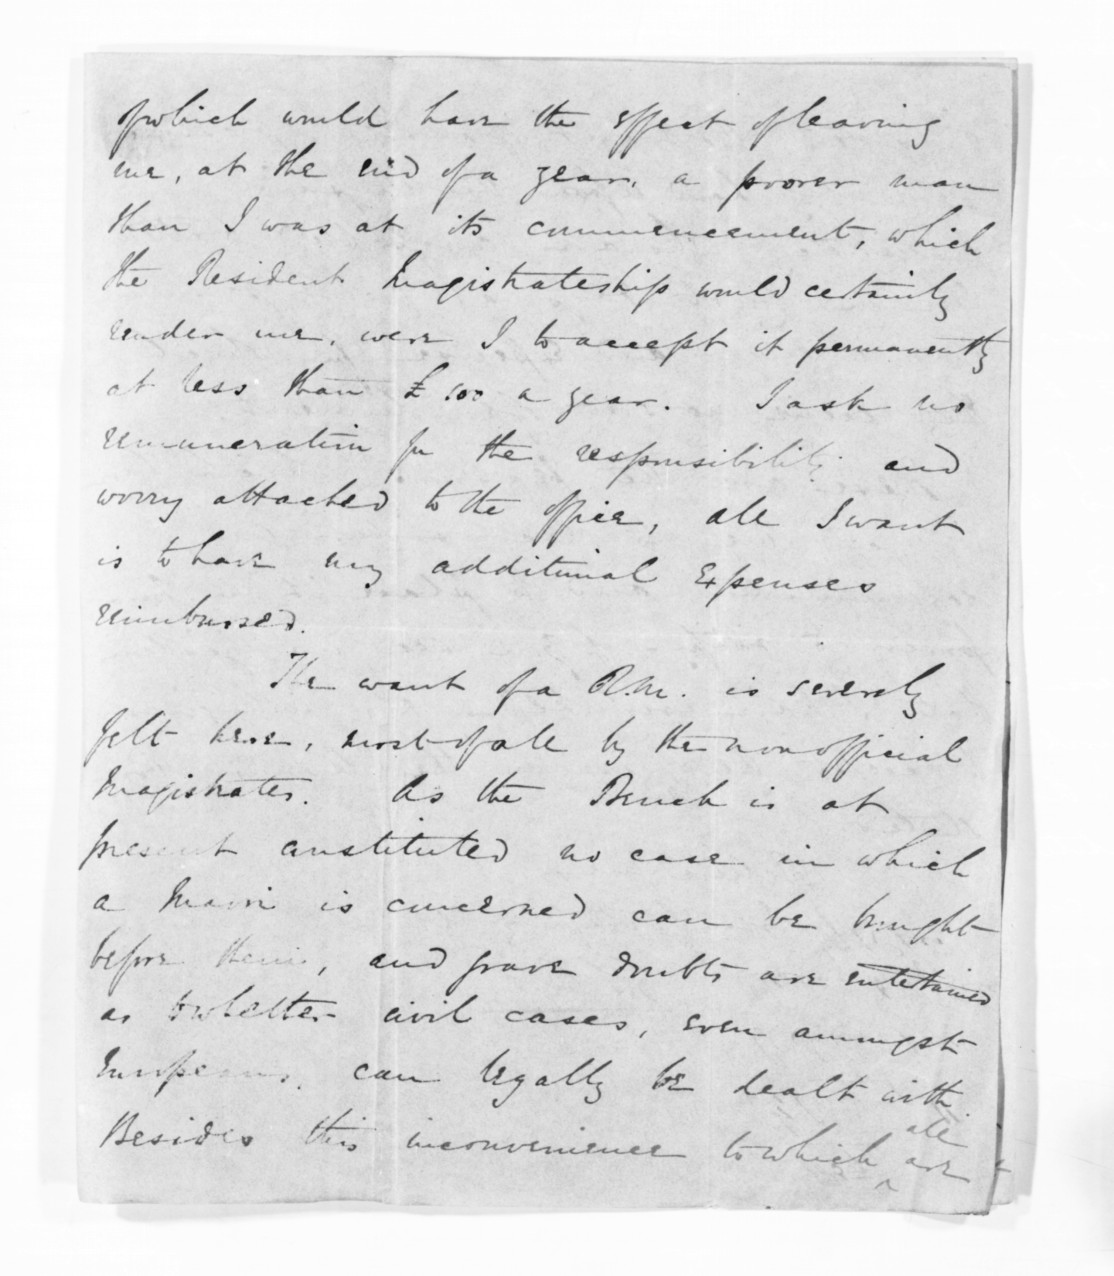 of which would have the effect of leaving
me, at the end of a year, a poorer man
than I was at its commencement, which
the Resident Magistrateship would certainly
render me, were I to accept it permanently
at less than £500 a year. I ask no
remuneration for the responsibility and
worry attached to the office, all I want
is to have my additional expenses
reimbursed.
The want of a R.M. is severely
felt here, most of all by the non official
Magistrates. As the Bench is at
present constituted no case in which
a Maori is concerned can be brought
before them, and grave doubts are entertained
as to whether civil cases, even amongst
Europeans, can legally be dealt with.
Besides this inconvenience to which ^all are